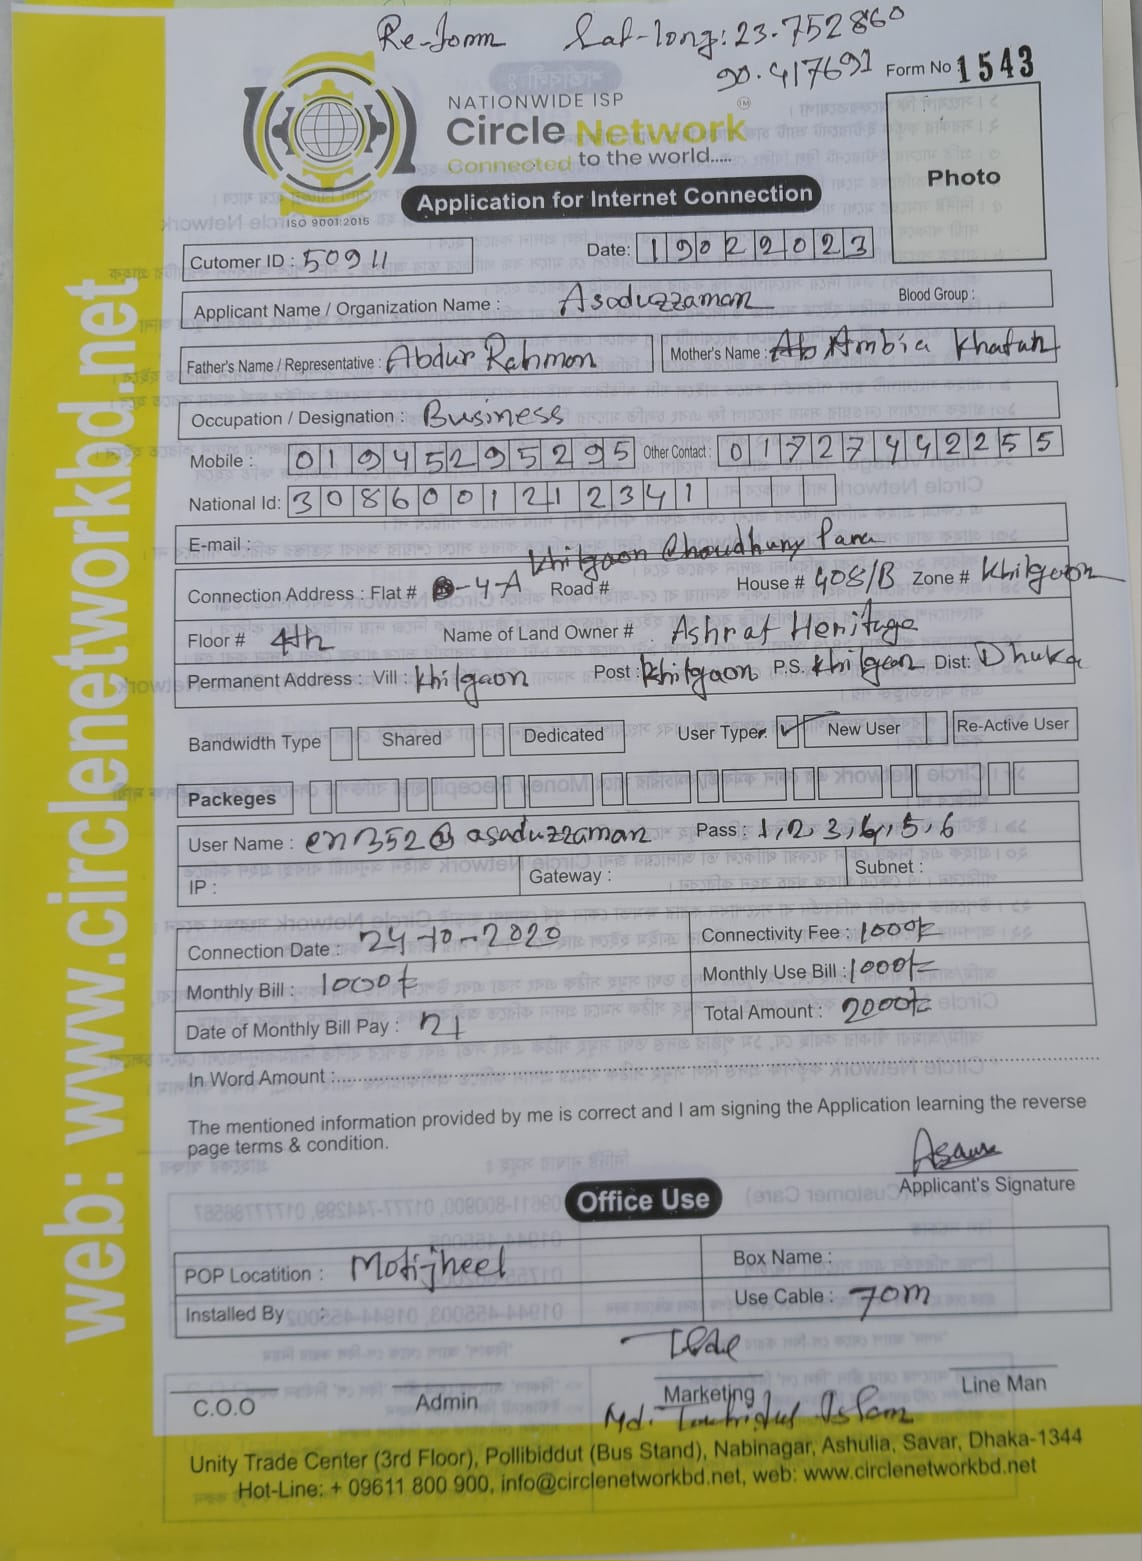 Re-form Lat-long: 23.752860
90.417691
Form No 1543
NATIONWIDE ISP
Circle Network TM
Connected to the world.....
ISO 9001:2015
Application for Internet Connection
Photo
Cutomer ID : 50911 Date: 19022023
Applicant Name / Organization Name : Asaduzzaman Blood Group :
Father's Name / Representative : Abdur Rahman Mother's Name : Ambia Khatun
Occupation / Designation : Business
Mobile : 01945295295 Other Contact : 01727442255
National Id: 3086001212341
E-mail :
Khilgaon Choudhury Para
Connection Address : Flat # -4-A Road # House # 408/B Zone # Khilgaon
Floor # 4th Name of Land Owner # Ashraf Heritage
Permanent Address : Vill : Khilgaon Post : Khilgaon P.S. Khilgaon Dist: Dhaka
Bandwidth Type Shared Dedicated User Type: New User Re-Active User
Packeges
User Name : en352@asaduzzaman Pass : 1,2,3,4,5,6
IP : Gateway : Subnet :
Connection Date : 24-10-2020 Connectivity Fee : 1000/=
Monthly Bill : 1000/= Monthly Use Bill : 1000/=
Date of Monthly Bill Pay : 21 Total Amount : 2000/=
In Word Amount :
The mentioned information provided by me is correct and I am signing the Application learning the reverse
page terms & condition.
Applicant's Signature
Office Use
POP Locatition : Motijheel Box Name :
Installed By : Use Cable : 70m
C.O.O Admin Marketing Line Man
Md. Touhidul Islam
Unity Trade Center (3rd Floor), Pollibiddut (Bus Stand), Nabinagar, Ashulia, Savar, Dhaka-1344
Hot-Line: + 09611 800 900, info@circlenetworkbd.net, web: www.circlenetworkbd.net
web: www.circlenetworkbd.net